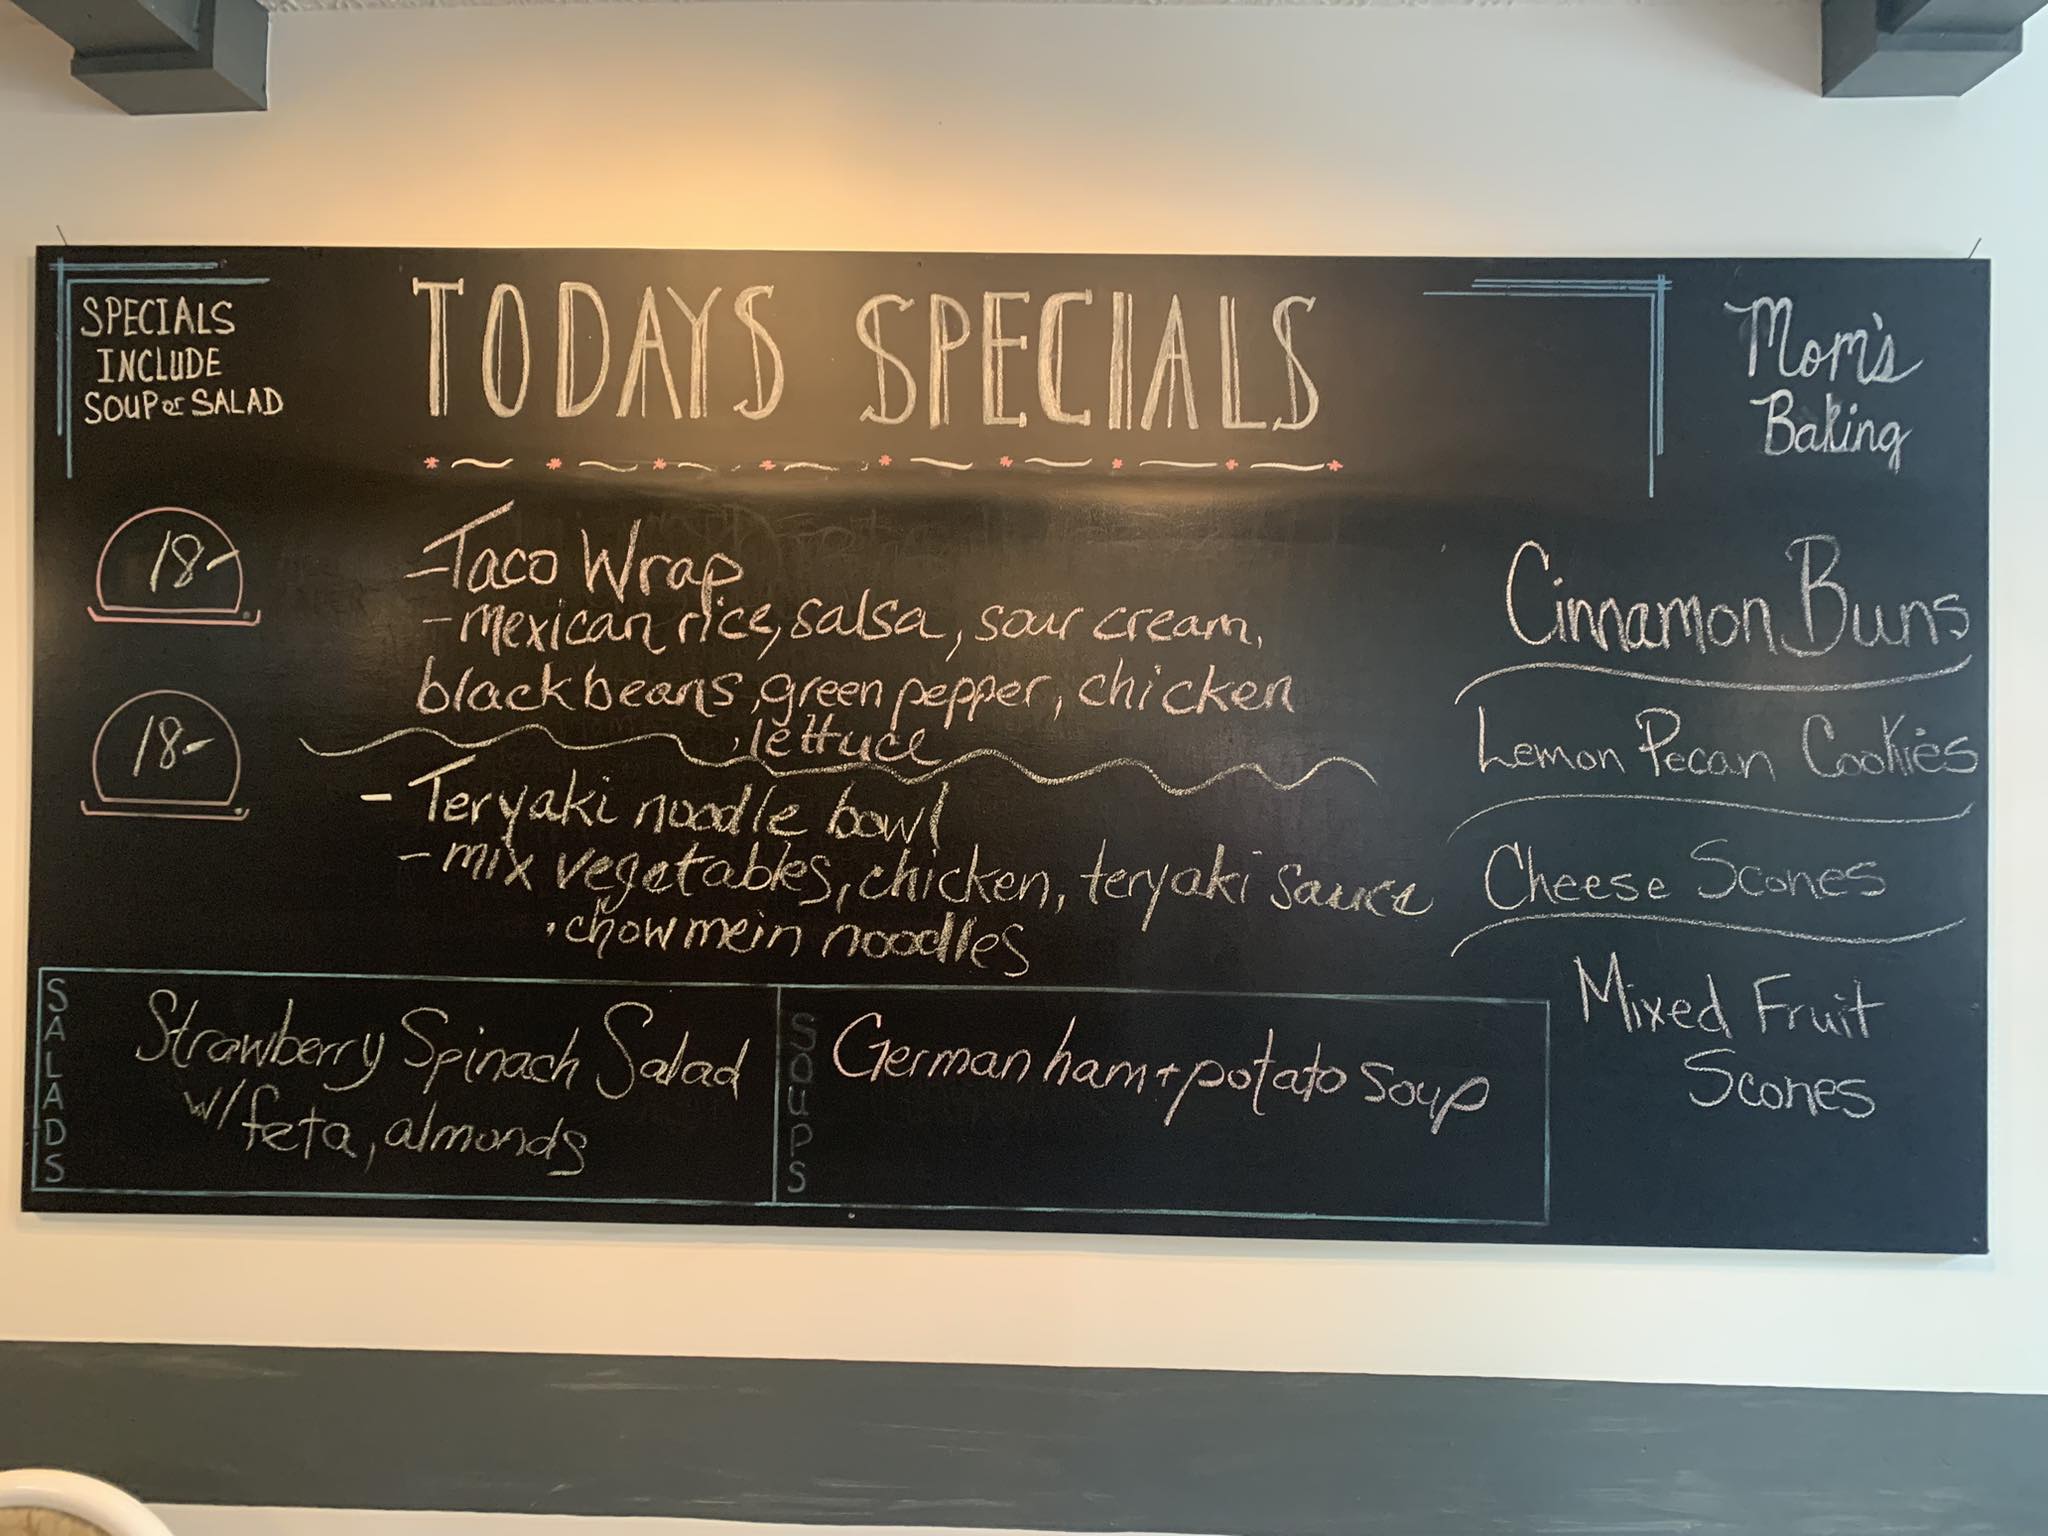 SPECIALS
INCLUDE
SOUP or SALAD
TODAYS SPECIALS
18-
-Taco Wrap
-mexican rice, salsa, sour cream,
black beans, green pepper, chicken
, lettuce
18-
- Teryaki noodle bowl
- mix vegetables, chicken, teryaki sauce
. chowmein noodles
SALADS
Strawberry Spinach Salad
w/ feta, almonds
SOUPS
German ham + potato soup
Mom's
Baking
Cinnamon Buns
Lemon Pecan Cookies
Cheese Scones
Mixed Fruit
Scones